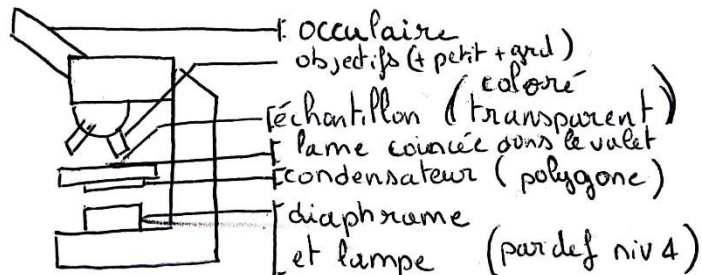 occulaire
objectifs (+ petit + grd)
échantillon (coloré transparent)
lame coincée dans le valet
condensateur (polygone)
diaphrame
et lampe (par def niv 4)